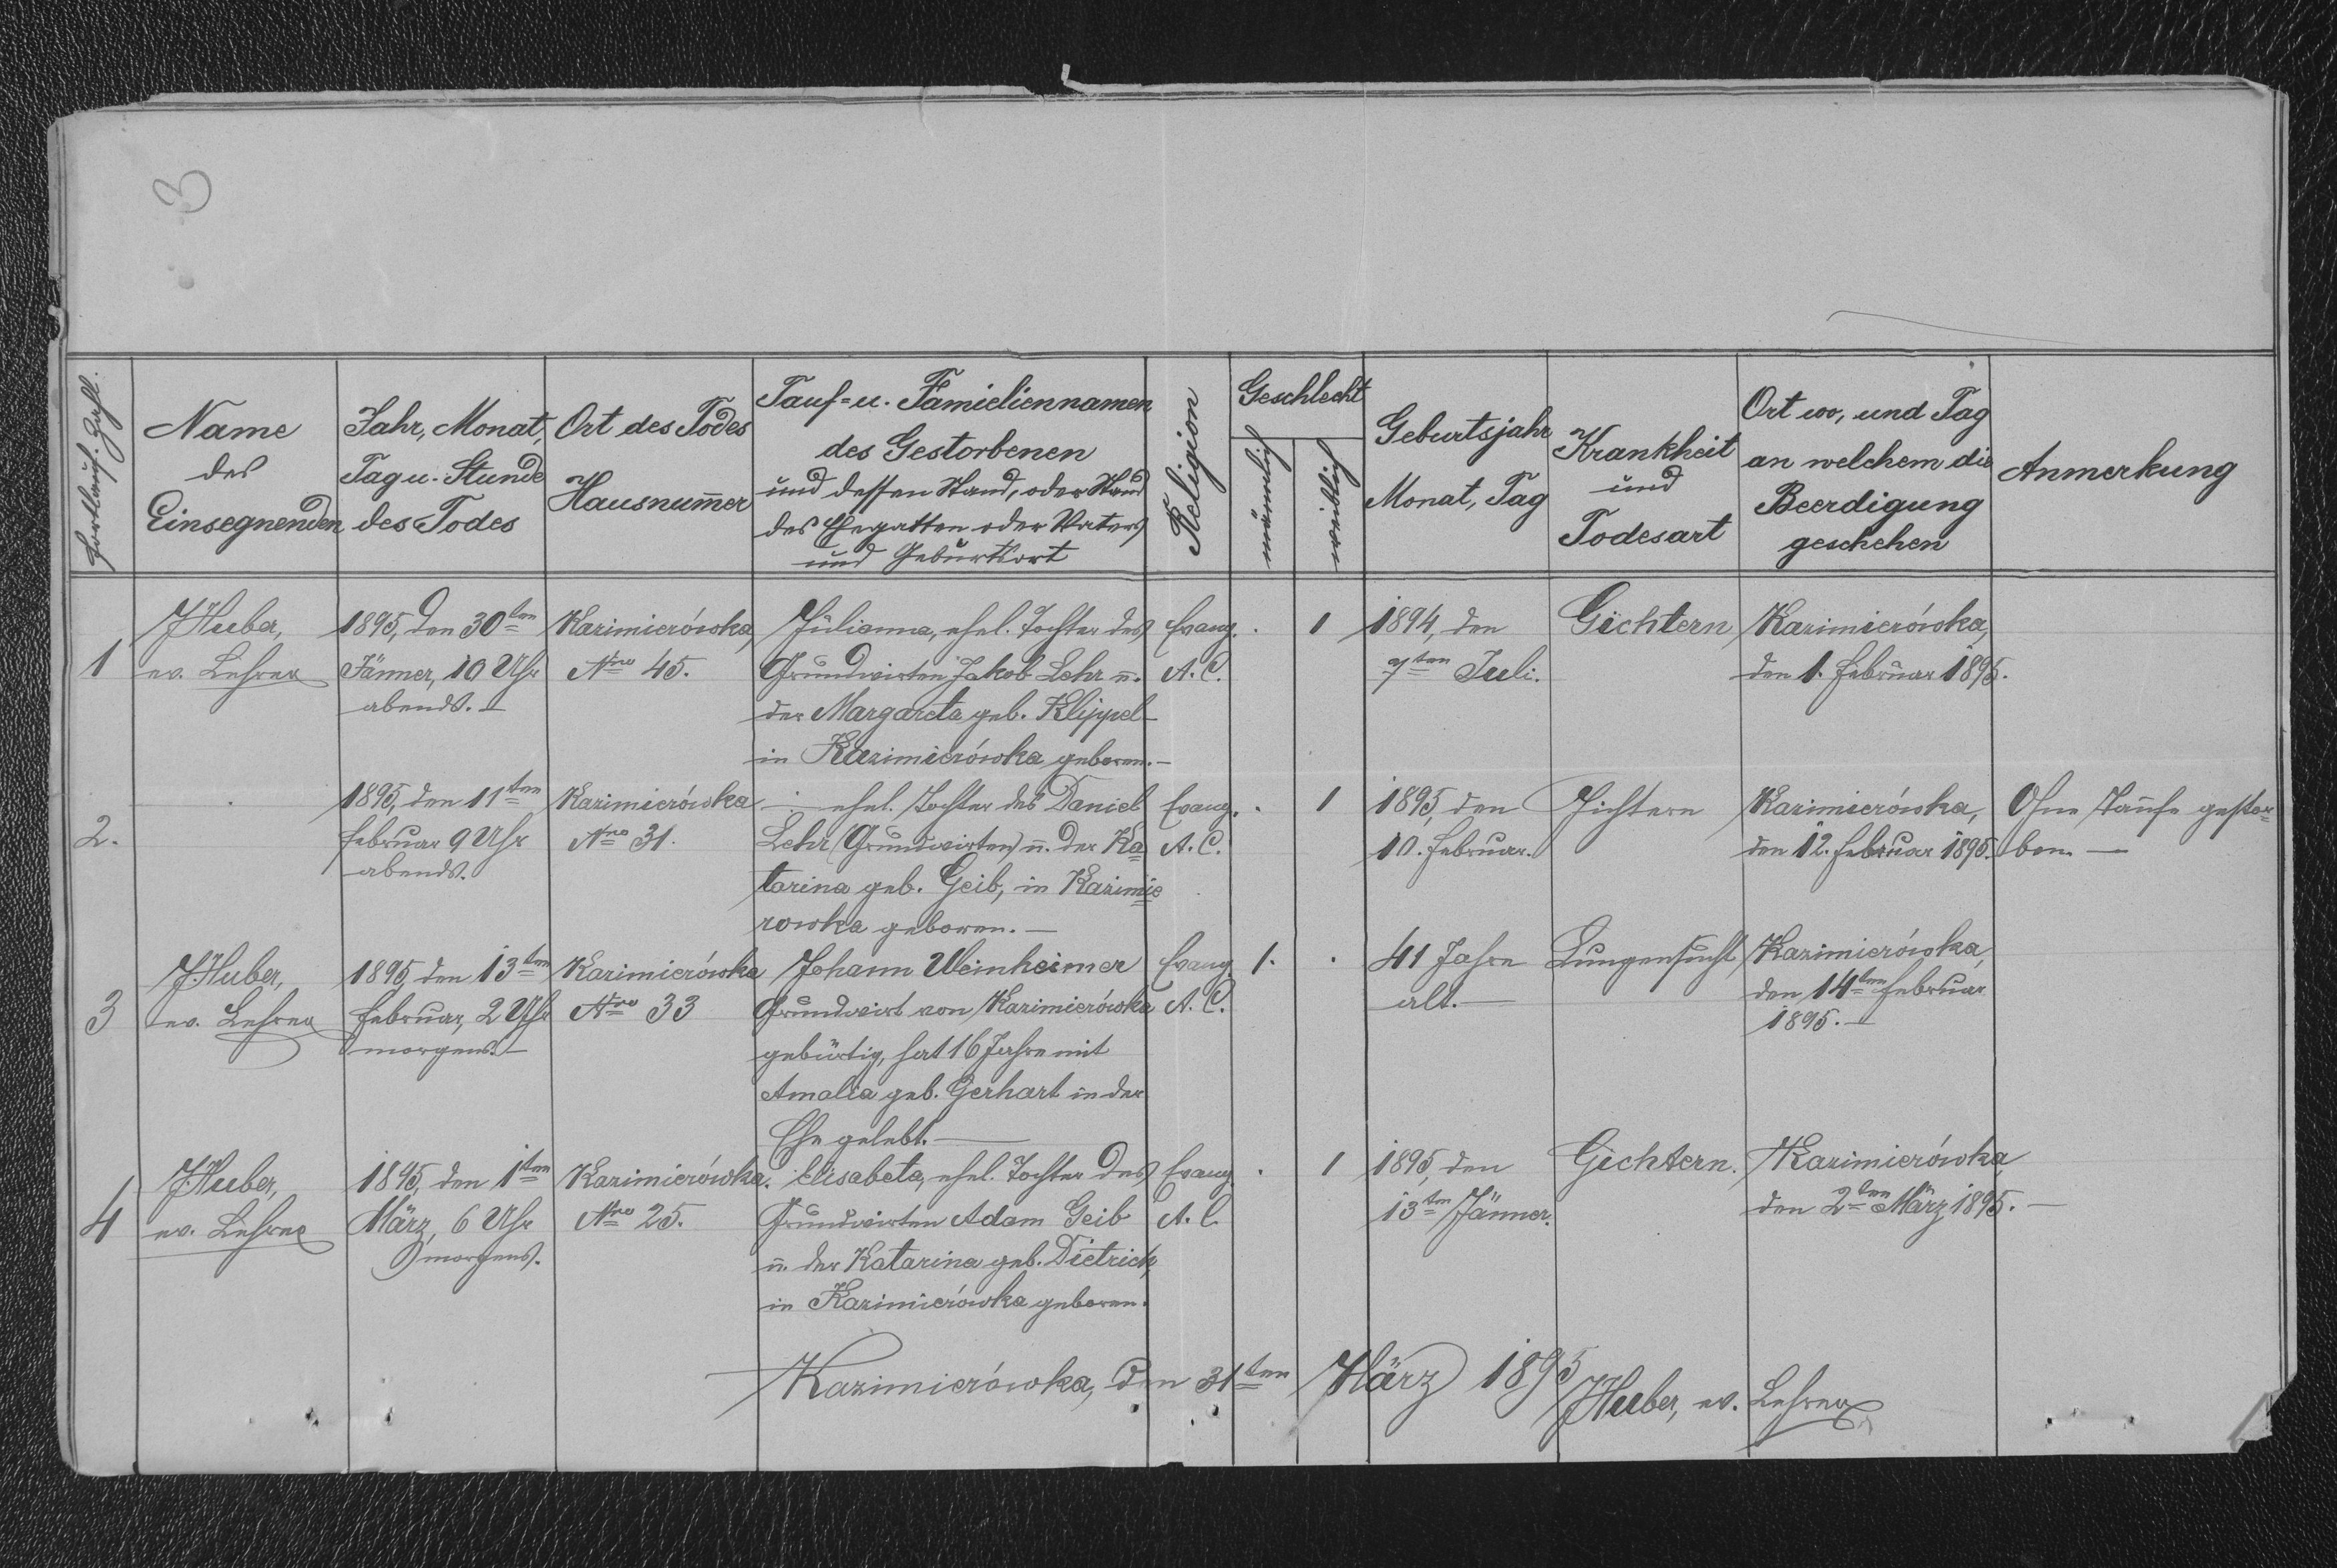 3
Fortlauf. Zahl.
Name
des
Einsegnenden
Jahr, Monat,
Tag u. Stunde
des Todes
Ort des Todes
Hausnum̄er
Tauf= u. Familiennamen
des Gestorbenen
und dessen Stand, oder Stand
des Ehegatten oder Vaters
und Geburtsort
Religion
Geschlecht
männlich
weiblich
Geburtsjahr
Monat, Tag
Krankheit
und
Todesart
Ort wo, und Tag
an welchem die
Beerdigung
geschehen
Anmerkung
1
J. Huber,
ev. Lehrer
1895, den 30ten
Jänner, 10 Uhr
abends.
Kazimierówka,
Nro 45.
Julianna, ehel. Tochter des
Grundwirten Jakob Lehr u.
der Margareta geb. Klippel
in Kazimierówka geboren.
Evang.
A. C.
1
1894, den
7ten Juli.
Gichtern
Kazimierówka,
den 1. Februar 1895.
2.
1895, den 11ten
Februar 9 Uhr
abends.
Kazimierówka
Nro 31.
— ehel. Tochter des Daniel
Lehr (Grundwirten) u. der Ka=
tarina geb. Geib, in Kazimie=
rowka geboren. —
Evang.
A. C.
1
1895, den
10. Februar.
Gichtern
Kazimierówka,
den 12. Februar 1895.
Ohne Taufe gestor=
ben. —
3
J. Huber,
ev. Lehrer
1895, den 13ten
Februar, 2 Uhr
morgens. —
Kazimierówka
Nro 33
Johann Weinheimer
Grundwirt von Kazimierówka
gebürtig, hat 16 Jahre mit
Amalia geb. Gerhart in der
Ehe gelebt. —
Evang.
A. C.
1.
41 Jahre
alt. —
Lungensucht
Kazimierówka,
den 14ten Februar
1895. —
4
J. Huber,
ev. Lehrer
1895, den 1ten
März, 6 Uhr
morgens.
Kazimierówka.
Nro 25.
Elisabeta, ehel. Tochter des
Grundwirten Adam Geib
u. der Katarina geb. Dietrich,
in Kazimierówka geboren.
Evang.
A. C.
1
1895, den
13ten Jänner.
Gichtern.
Kazimierówka
den 2ten März 1895. —
Kazimierówka, den 31ten März 1895
J. Huber, ev. Lehrer